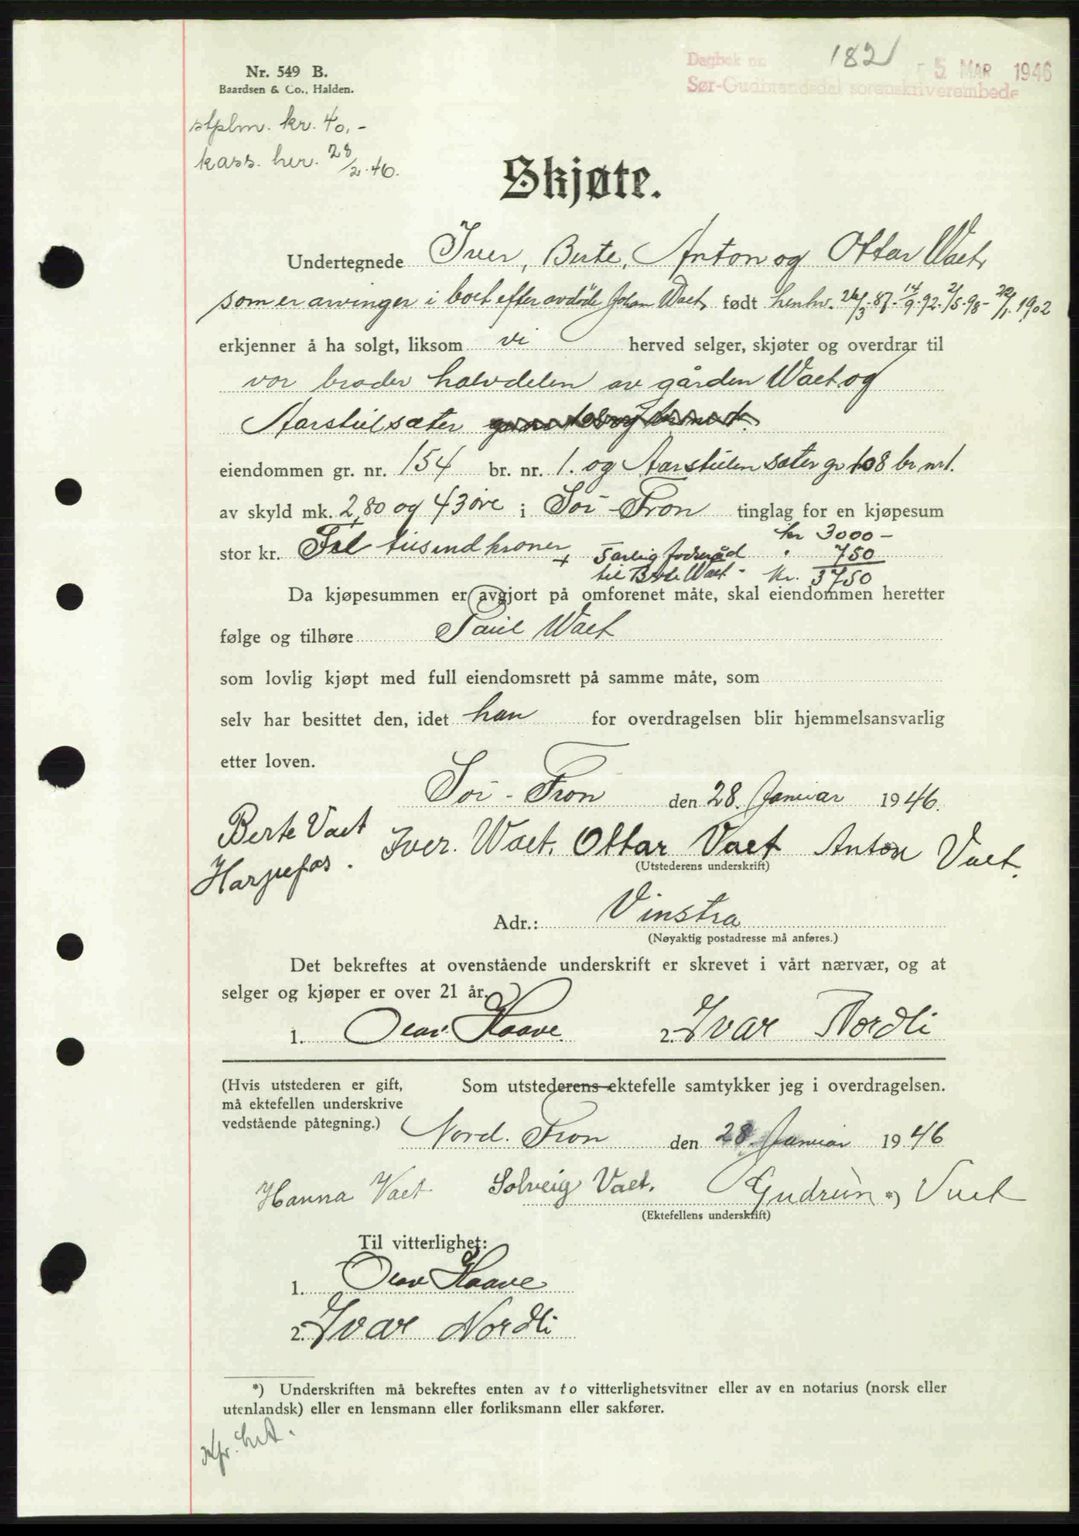 Nr. 549 B.
Baardsen & Co., Halden.
Dagbok nr. 182 - 5 MAR 1946
Sør-Gudbrandsdal sorenskriverembede
stplm. kr. 40,-
kass. her. 28/2.46.
Skjøte.
Undertegnede Iver, Berte, Anton og Ottar Waet,
som er arvinger i boet efter avdøde Johan Waet, født henhv. 26/3-87-14/9-92-2/5-98-22/1-1902
erkjenner å ha solgt, liksom vi herved selger, skjøter og overdrar til
vor broder halvdelen av gården Waet og
Aarstulsæter
eiendommen gr. nr. 154 br. nr. 1. og Aarstulen sæter gr 108 br. nr 1.
av skyld mk. 2,80 og 43 øre i Sør-Fron tinglag for en kjøpesum
stor kr. Tre tusend kroner kr 3000-
+ Særlig foderåd " 750
til Berte Waet - Kr. 3750
Da kjøpesummen er avgjort på omforenet måte, skal eiendommen heretter
følge og tilhøre Paul Waet
som lovlig kjøpt med full eiendomsrett på samme måte, som
selv har besittet den, idet han for overdragelsen blir hjemmelsansvarlig
etter loven.
Sør-Fron den 28. Januar 1946.
Berte Vaet Iver. Waet. Ottar Vaet Anton Vaet.
Harpefos.
(Utstederens underskrift)
Adr.: Vinstra
(Nøyaktig postadresse må anføres.)
Det bekreftes at ovenstående underskrift er skrevet i vårt nærvær, og at
selger og kjøper er over 21 år.
1. Olav Haave. 2. Ivar Nordli
(Hvis utstederen er gift, Som utstederens ektefelle samtykker jeg i overdragelsen.
må ektefellen underskrive
vedstående påtegning.)
Nord. Fron den 28. Januar 1946
Hanna Vaet. Solveig Vaet. Gudrun *) Vaet
(Ektefellens underskrift)
Til vitterlighet:
1. Olav Haave
2. Ivar Nordli
*) Underskriften må bekreftes enten av to vitterlighetsvitner eller av en notarius (norsk eller
utenlandsk) eller en lensmann eller forliksmann eller sakfører.